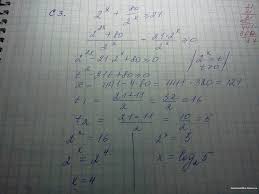 C3. 2^x + 80/2^x = 21
(2^2x + 80)/2^x - 21·2^x/2^x = 0
2^2x - 21·2^x + 80 = 0 / 2^x = t / t>0
t² - 21t + 80 = 0
441 - 4·80 = 441 - 320 = 121
t1 = (21+11)/2 = 32/2 = 16
t2 = (21-11)/2 = 10/2 = 5
2^x = 16 2^x = 5
2^x = 2^4 x = log₂5
x = 4